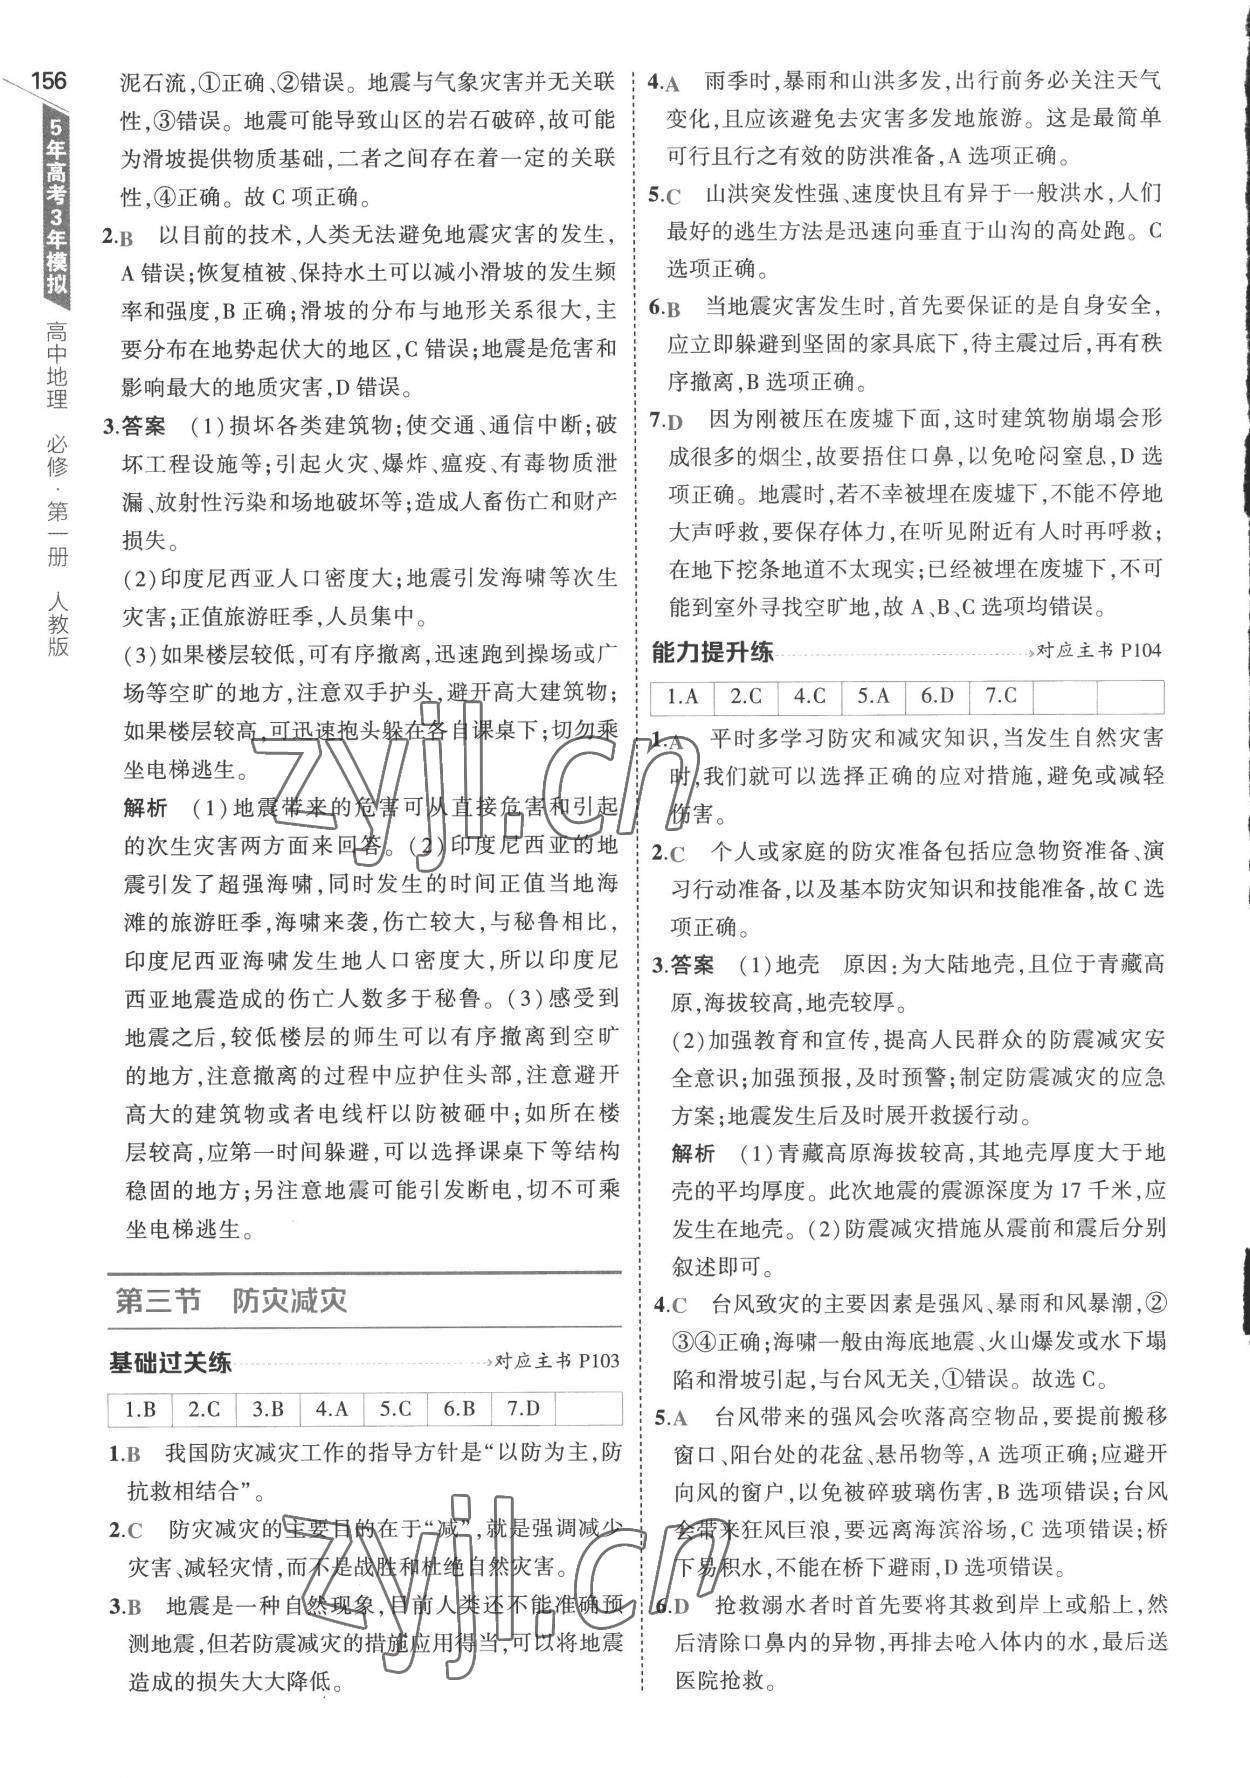 156
5年高考3年模拟
高中地理 必修·第一册 人教版
泥石流,①正确、②错误。地震与气象灾害并无关联
性,③错误。地震可能导致山区的岩石破碎,故可能
为滑坡提供物质基础,二者之间存在着一定的关联
性,④正确。故 C 项正确。
2.B 以目前的技术,人类无法避免地震灾害的发生,
A 错误;恢复植被、保持水土可以减小滑坡的发生频
率和强度,B 正确;滑坡的分布与地形关系很大,主
要分布在地势起伏大的地区,C 错误;地震是危害和
影响最大的地质灾害,D 错误。
3.答案 (1)损坏各类建筑物;使交通、通信中断;破
坏工程设施等;引起火灾、爆炸、瘟疫、有毒物质泄
漏、放射性污染和场地破坏等;造成人畜伤亡和财产
损失。
(2)印度尼西亚人口密度大;地震引发海啸等次生
灾害;正值旅游旺季,人员集中。
(3)如果楼层较低,可有序撤离,迅速跑到操场或广
场等空旷的地方,注意双手护头,避开高大建筑物;
如果楼层较高,可迅速抱头躲在各自课桌下;切勿乘
坐电梯逃生。
解析 (1)地震带来的危害可从直接危害和引起
的次生灾害两方面来回答。(2)印度尼西亚的地
震引发了超强海啸,同时发生的时间正值当地海
滩的旅游旺季,海啸来袭,伤亡较大,与秘鲁相比,
印度尼西亚海啸发生地人口密度大,所以印度尼
西亚地震造成的伤亡人数多于秘鲁。(3)感受到
地震之后,较低楼层的师生可以有序撤离到空旷
的地方,注意撤离的过程中应护住头部,注意避开
高大的建筑物或者电线杆以防被砸中;如所在楼
层较高,应第一时间躲避,可以选择课桌下等结构
稳固的地方;另注意地震可能引发断电,切不可乘
坐电梯逃生。
第三节 防灾减灾
基础过关练 对应主书 P103
1.B 2.C 3.B 4.A 5.C 6.B 7.D
1.B 我国防灾减灾工作的指导方针是“以防为主,防
抗救相结合”。
2.C 防灾减灾的主要目的在于“减”,就是强调减少
灾害、减轻灾情,而不是战胜和杜绝自然灾害。
3.B 地震是一种自然现象,目前人类还不能准确预
测地震,但若防震减灾的措施应用得当,可以将地震
造成的损失大大降低。
4.A 雨季时,暴雨和山洪多发,出行前务必关注天气
变化,且应该避免去灾害多发地旅游。这是最简单
可行且行之有效的防洪准备,A 选项正确。
5.C 山洪突发性强、速度快且有异于一般洪水,人们
最好的逃生方法是迅速向垂直于山沟的高处跑。C
选项正确。
6.B 当地震灾害发生时,首先要保证的是自身安全,
应立即躲避到坚固的家具底下,待主震过后,再有秩
序撤离,B 选项正确。
7.D 因为刚被压在废墟下面,这时建筑物崩塌会形
成很多的烟尘,故要捂住口鼻,以免呛闷窒息,D 选
项正确。地震时,若不幸被埋在废墟下,不能不停地
大声呼救,要保存体力,在听见附近有人时再呼救;
在地下挖条地道不太现实;已经被埋在废墟下,不可
能到室外寻找空旷地,故 A、B、C 选项均错误。
能力提升练 对应主书 P104
1.A 2.C 4.C 5.A 6.D 7.C
1.A 平时多学习防灾和减灾知识,当发生自然灾害
时,我们就可以选择正确的应对措施,避免或减轻
伤害。
2.C 个人或家庭的防灾准备包括应急物资准备、演
习行动准备,以及基本防灾知识和技能准备,故 C 选
项正确。
3.答案 (1)地壳 原因:为大陆地壳,且位于青藏高
原,海拔较高,地壳较厚。
(2)加强教育和宣传,提高人民群众的防震减灾安
全意识;加强预报,及时预警;制定防震减灾的应急
方案;地震发生后及时展开救援行动。
解析 (1)青藏高原海拔较高,其地壳厚度大于地
壳的平均厚度。此次地震的震源深度为 17 千米,应
发生在地壳。(2)防震减灾措施从震前和震后分别
叙述即可。
4.C 台风致灾的主要因素是强风、暴雨和风暴潮,②
③④正确;海啸一般由海底地震、火山爆发或水下塌
陷和滑坡引起,与台风无关,①错误。故选 C。
5.A 台风带来的强风会吹落高空物品,要提前搬移
窗口、阳台处的花盆、悬吊物等,A 选项正确;应避开
向风的窗户,以免被碎玻璃伤害,B 选项错误;台风
会带来狂风巨浪,要远离海滨浴场,C 选项错误;桥
下易积水,不能在桥下避雨,D 选项错误。
6.D 抢救溺水者时首先要将其救到岸上或船上,然
后清除口鼻内的异物,再排去呛入体内的水,最后送
医院抢救。
zyjl.cn
zyjl.cn